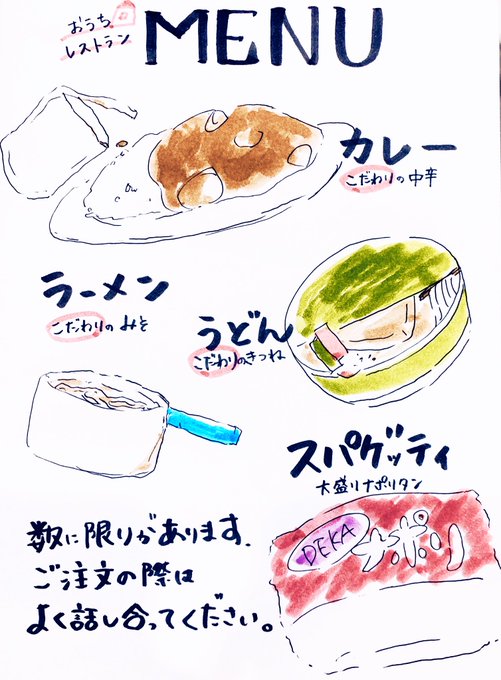 おうち
レストラン
MENU
カレー
こだわりの中辛
ラーメン
こだわりのみそ
うどん
こだわりのきつね
スパゲッティ
大盛りナポリタン
DEKA
ナポリ
数に限りがあります.
ご注文の際は
よく話し合ってください。